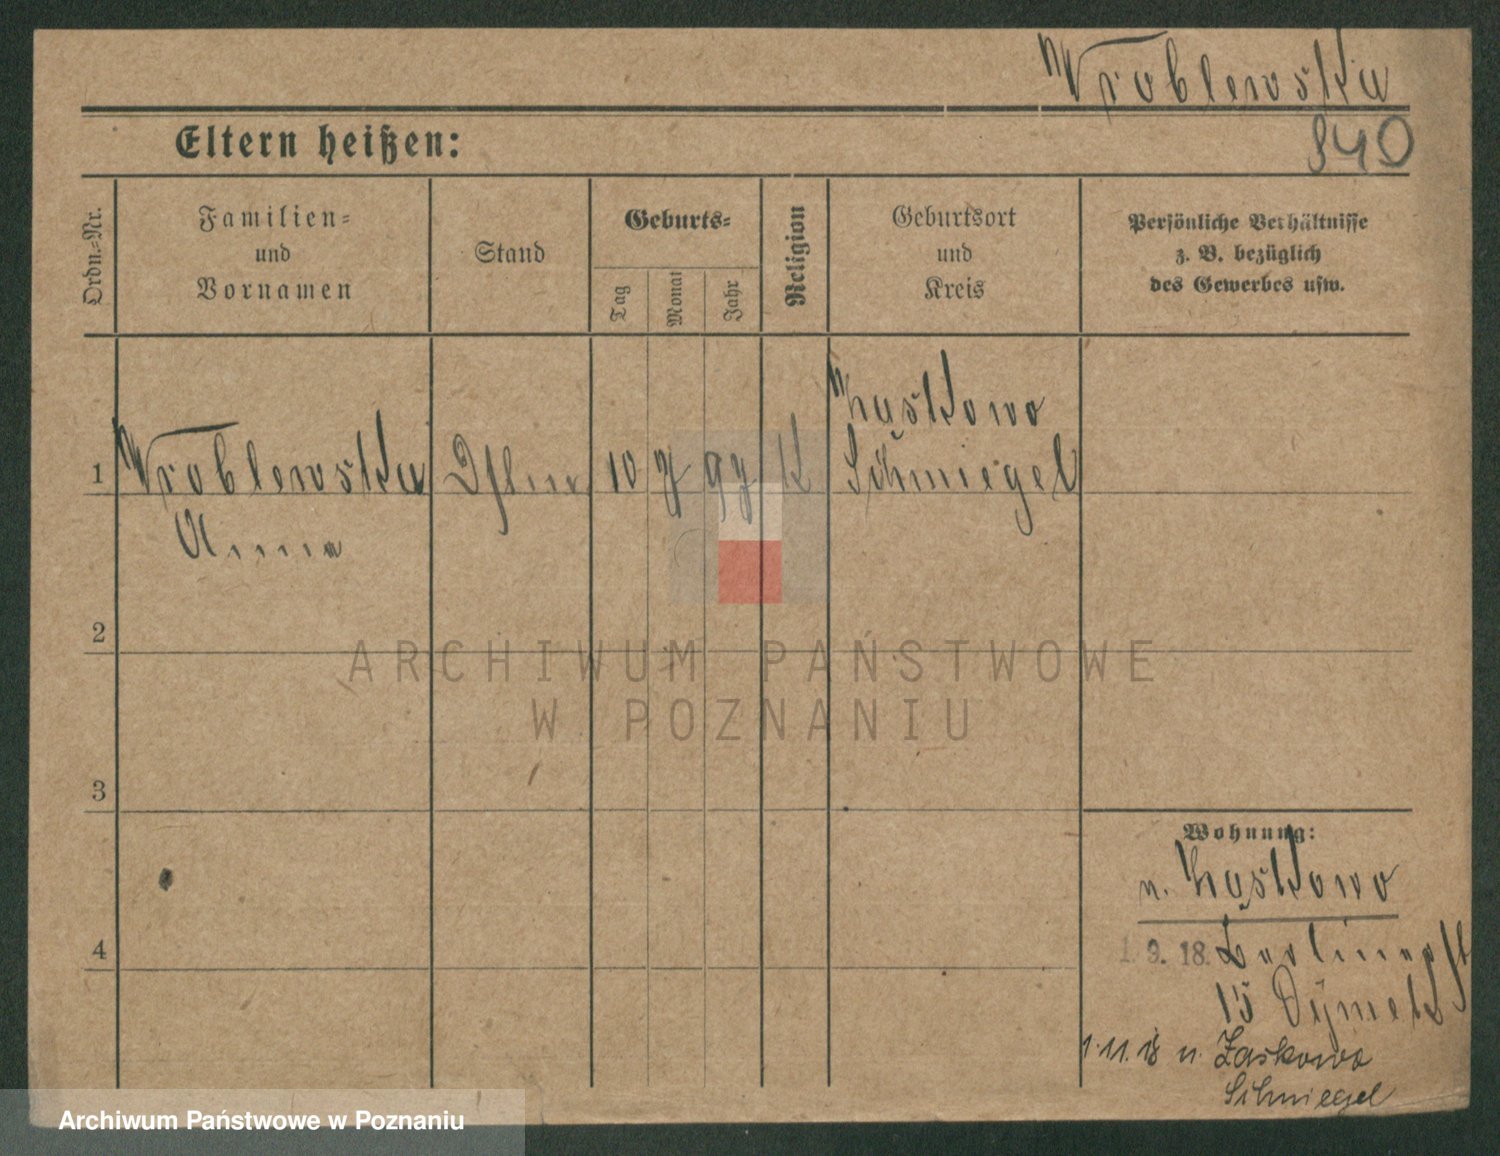 Wroblewska
940
Eltern heißen:
Ordn.-Nr.
Familien-
und
Vornamen
Stand
Geburts-
Tag
Monat
Jahr
Religion
Geburtsort
und
Kreis
Persönliche Verhältnisse
z. B. bezüglich
des Gewerbes usw.
1
Wroblewska
Anna
10 7 97
K
Schmiegel
2
3
4
Wohnung:
n.
1. 9. 18. Berlinerst
15
1.11.18 n. Zaskowo
Schmiegel
ARCHIWUM PAŃSTWOWE
W POZNANIU
Archiwum Państwowe w Poznaniu